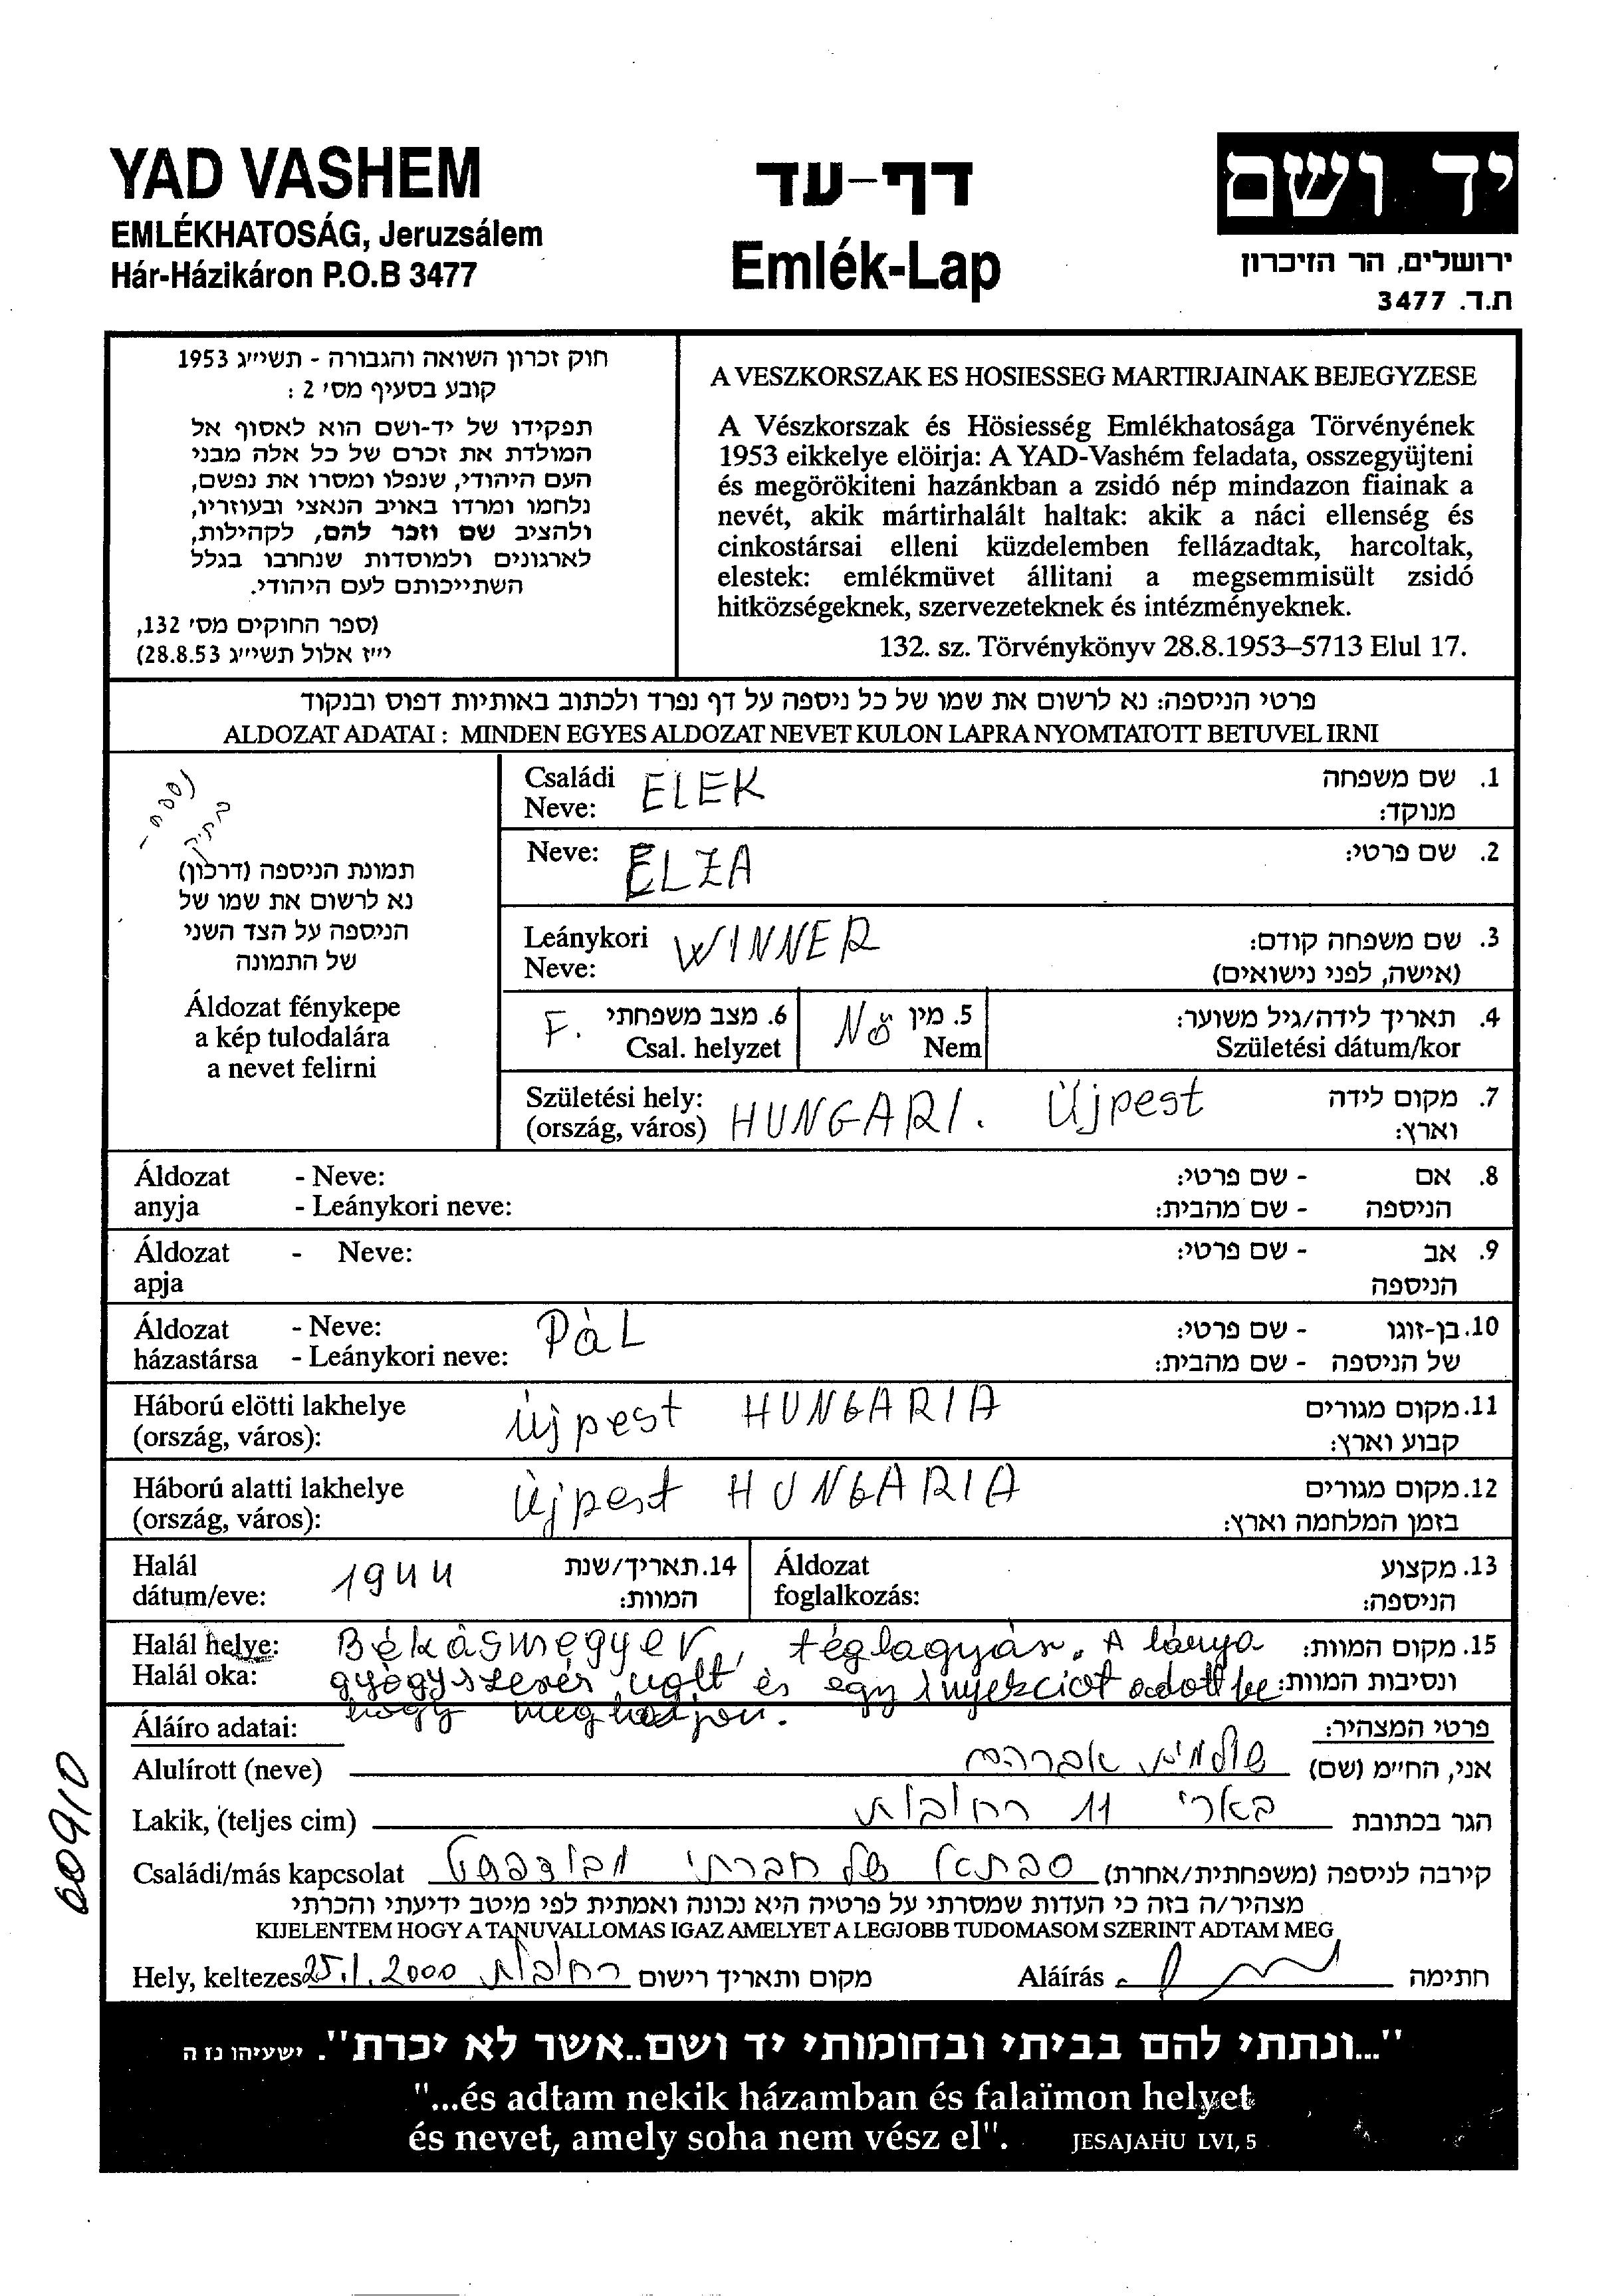 YAD VASHEM
EMLÉKHATOSÁG, Jeruzsálem
Hár-Házikáron P.O.B 3477
דף-עד
Emlék-Lap
יד ושם
ירושלים, הר הזיכרון
ת.ד. 3477
חוק זכרון השואה והגבורה - תשי״ג 1953
קובע בסעיף מס׳ 2 :
תפקידו של יד-ושם הוא לאסוף אל
המולדת את זכרם של כל אלה מבני
העם היהודי, שנפלו ומסרו את נפשם,
נלחמו ומרדו באויב הנאצי ובעוזריו,
ולהציב שם וזכר להם, לקהילות,
לארגונים ולמוסדות שנחרבו בגלל
השתייכותם לעם היהודי.
(ספר החוקים מס׳ 132,
י״ז אלול תשי״ג 28.8.53)
A VESZKORSZAK ES HOSIESSEG MARTIRJAINAK BEJEGYZESE
A Vészkorszak és Hösiesség Emlékhatosága Törvényének
1953 eikkelye elöirja: A YAD-Vashém feladata, osszegyüjteni
és megörökiteni hazánkban a zsidó nép mindazon fiainak a
nevét, akik mártirhalált haltak: akik a náci ellenség és
cinkostársai elleni küzdelemben fellázadtak, harcoltak,
elestek: emlékmüvet állitani a megsemmisült zsidó
hitközségeknek, szervezeteknek és intézményeknek.
132. sz. Törvénykönyv 28.8.1953–5713 Elul 17.
פרטי הניספה: נא לרשום את שמו של כל ניספה על דף נפרד ולכתוב באותיות דפוס ובנקוד
ALDOZAT ADATAI : MINDEN EGYES ALDOZAT NEVET KULON LAPRA NYOMTATOTT BETUVEL IRNI
תמונת הניספה (דרכון)
נא לרשום את שמו של
הניספה על הצד השני
של התמונה
Áldozat fénykepe
a kép tulodalára
a nevet felirni
Családi ELEK 1. שם משפחה
Neve: מנוקד:
Neve: ELZA 2. שם פרטי:
Leánykori WINNER 3. שם משפחה קודם:
Neve: (אישה, לפני נישואים)
F. 6. מצב משפחתי Nő 5. מין 4. תאריך לידה/גיל משוער:
Csal. helyzet Nem Születési dátum/kor
Születési hely: HUNGARI. Újpest 7. מקום לידה
(ország, város) וארץ:
Áldozat - Neve: 8. אם - שם פרטי:
anyja - Leánykori neve: הניספה - שם מהבית:
Áldozat - Neve: 9. אב - שם פרטי:
apja הניספה
Áldozat - Neve: PáL 10. בן-זוגו - שם פרטי:
házastársa - Leánykori neve: של הניספה - שם מהבית:
Háború elötti lakhelye újpest HUNGARIA 11. מקום מגורים
(ország, város): קבוע וארץ:
Háború alatti lakhelye Újpest HUNGARIA 12. מקום מגורים
(ország, város): בזמן המלחמה וארץ:
Halál 1944 14. תאריך/שנת Áldozat 13. מקצוע
dátum/eve: המוות: foglalkozás: הניספה:
Halál helye: Békásmegyer, téglagyár. A lánya 15. מקום המוות:
Halál oka: gyógyszerész volt és egy inyekciot adott be ונסיבות המוות:
hogy meghaljon.
Áláíro adatai: פרטי המצהיר:
Alulírott (neve) שולמית אברהם אני, החי״מ (שם)
Lakik, (teljes cim) בארי 11 רחובות הגר בכתובת
Családi/más kapcsolat סבתא של חברתי מבודפשט קירבה לניספה (משפחתית/אחרת)
מצהיר/ה בזה כי העדות שמסרתי על פרטיה היא נכונה ואמתית לפי מיטב ידיעתי והכרתי
KIJELENTEM HOGY A TANUVALLOMAS IGAZ AMELYET A LEGJOBB TUDOMASOM SZERINT ADTAM MEG
Hely, keltezes 25.1.2000 רחובות מקום ותאריך רישום Aláírás חתימה
60910
"...ונתתי להם בביתי ובחומותי יד ושם..אשר לא יכרת". ישעיהו נז ה
"...és adtam nekik házamban és falaïmon helyet
és nevet, amely soha nem vész el". JESAJAHU LVI, 5